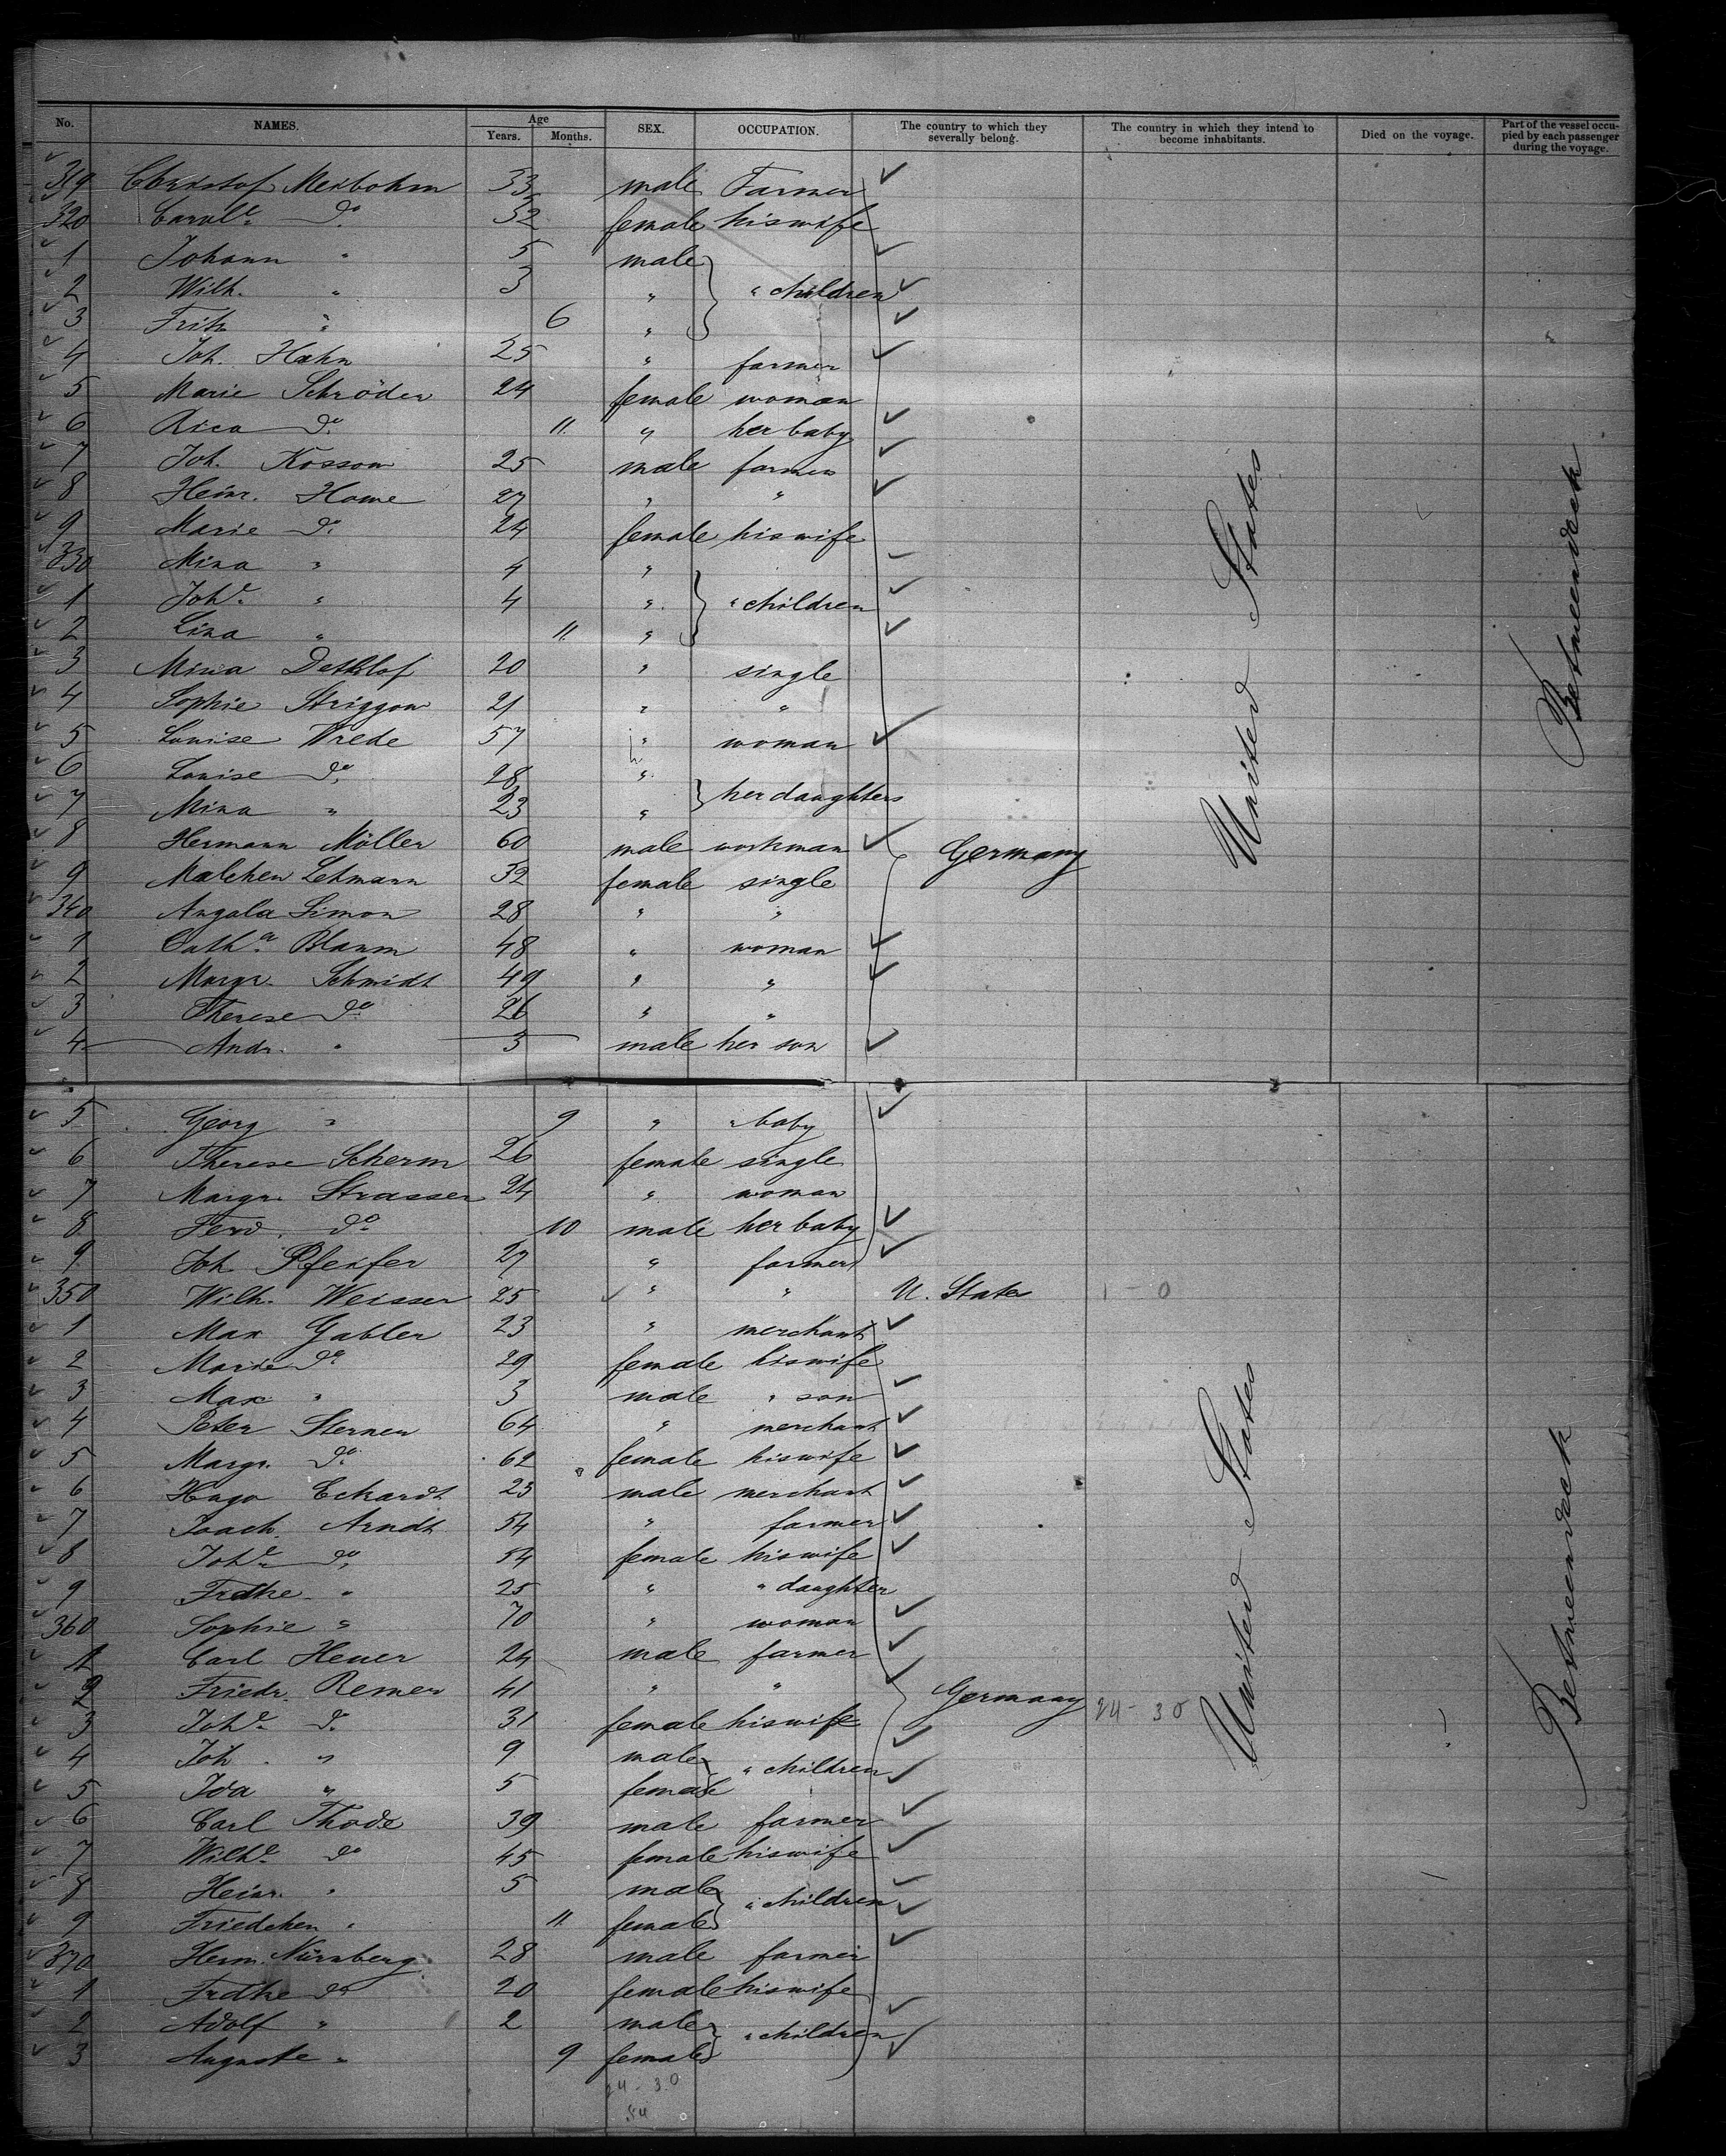 No. NAMES. Age Years. Months. SEX. OCCUPATION. The country to which they severally belong. The country in which they intend to become inhabitants. Died on the voyage. Part of the vessel occupied by each passenger during the voyage.
319 Christof Meibohm 33 male Farmer
320 Carole do 32 female his wife
1 Johann " 5 male
2 Wilh. " 3 " " children
3 Fritz " 6 "
4 Joh. Hahn 25 " farmer
5 Marie Schröder 24 female woman
6 Rica do 11 " her baby
7 Joh. Kossow 25 male farmer
8 Heinr. Howe 27 " "
9 Marie do 24 female his wife
330 Mina " 4 "
1 Johe " 4 " " children
2 Lina " 11 "
3 Mina Dethlof 20 " single
4 Sophie Striggow 21 " "
5 Louise Wrede 57 " woman
6 Louise do 28 "
7 Mina " 23 " her daughters
8 Hermann Möller 60 male workman Germany
9 Malchen Lehmann 32 female single
340 Angala Simon 28 " "
1 Catha Blaum 48 " woman
2 Margr. Schmidt 49 " "
3 Therese do 26 " "
4 Andr. " 3 male her son
5 Georg " 9 " " baby
6 Therese Scherm 26 female single
7 Margr. Strasser 24 " woman
8 Ferd. do 10 male her baby
9 Joh. Pfeifer 27 " farmer
350 Wilh. Weisser 25 " " U. States 1 - 0
1 Max Gabler 23 " merchant
2 Marie do 29 female his wife
3 Max " 3 male " son
4 Peter Sterner 64 " merchant
5 Margr. do 62 female his wife
6 Hugo Eckardt 23 male merchant
7 Joach. Arndt 54 " farmer
8 Johe do 54 female his wife
9 Frdke " 25 " " daughter
360 Sophie " 70 " woman
1 Carl Heuer 24 male farmer
2 Friedr. Remer 41 " " Germany 24 - 30
3 Johe do 31 female his wife
4 Joh. " 9 male " children
5 Ida " 5 female
6 Carl Thode 39 male farmer
7 Wilhe do 45 female his wife
8 Heinr. " 5 male " children
9 Friedchen " 11 female
370 Herm. Nürnberg 28 male farmer
1 Frdke do 20 female his wife
2 Adolf " 2 male " children
3 Auguste " 9 female
24 - 30
54
United States
Betweendeck
United States
Betweendeck